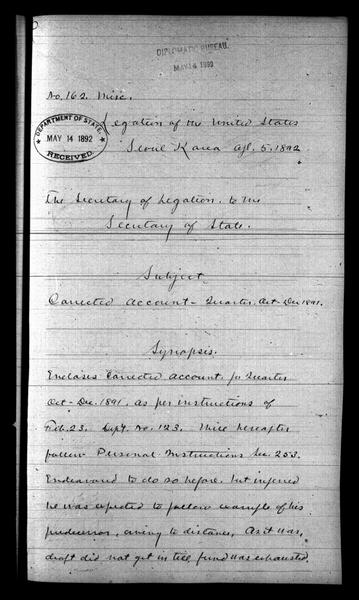 DIPLOMATIC BUREAU.
MAY 14 1892
No. 162. Misc.
DEPARTMENT OF STATE.
MAY 14 1892
RECEIVED.
Legation of the United States
Seoul Korea Apl. 5. 1892
The Secretary of Legation. to the
Secretary of State.
Subject
Corrected Account - Quarter, Oct - Dec 1891.
Synopsis.
Encloses Corrected Account. for Quarter
Oct - Dec. 1891. as per instructions of
Feb. 23. Dept. No. 123. Will hereafter
follow Personal Instructions Sec. 253.
Endeavored to do so before. but inferred
he was expected to follow example of his
predecessor, owing to distance. As it was,
draft did not get in till fund was exhausted.